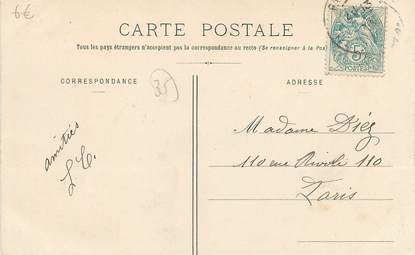 6€
CARTE POSTALE
Tous les pays étrangers n'acceptent pas la correspondance au recto (Se renseigner à la Poste)
CORRESPONDANCE
ADRESSE
35
5c
POSTES
amitiés
J. C.
Madame Diég
110 rue Rivoli 110
Paris